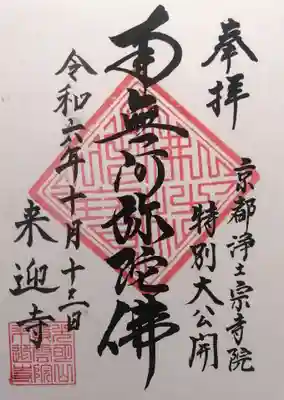 奉拝
京都浄土宗寺院
特別大公開
南無阿弥陀佛
令和六年十月十三日
来迎寺